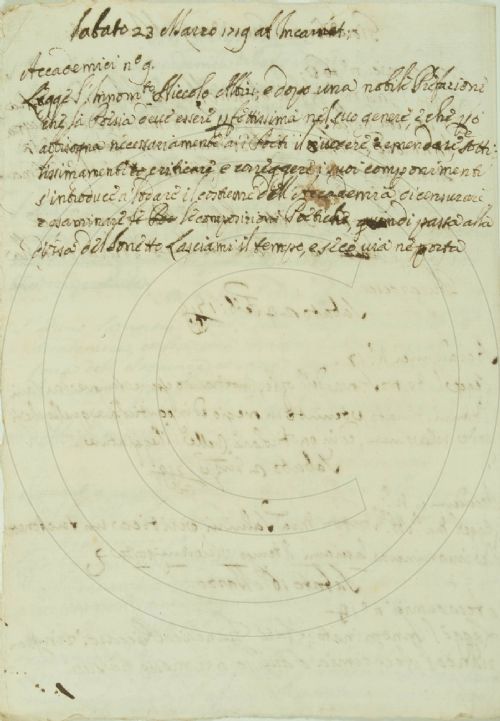 Sabato 23 Marzo 1719 al Incamer.
Accademici n.o 9.
Legge l'Innom.to Niccolo Albizi, e dopo una nobile Prefazione
che la Poesia deve essere pfettissima nel suo genere e che p̃o
abbisogna necessariamente a i Poeti il emendare sotti:
lissimamente criticare e correggere i suoi componimenti
s'introduce a lodare il costume dell'Accademia di censurare
ed esaminare le composizioni Poetiche, quindi passa alla
difesa del sonetto Lasciami il tempo, e seco via ne porta